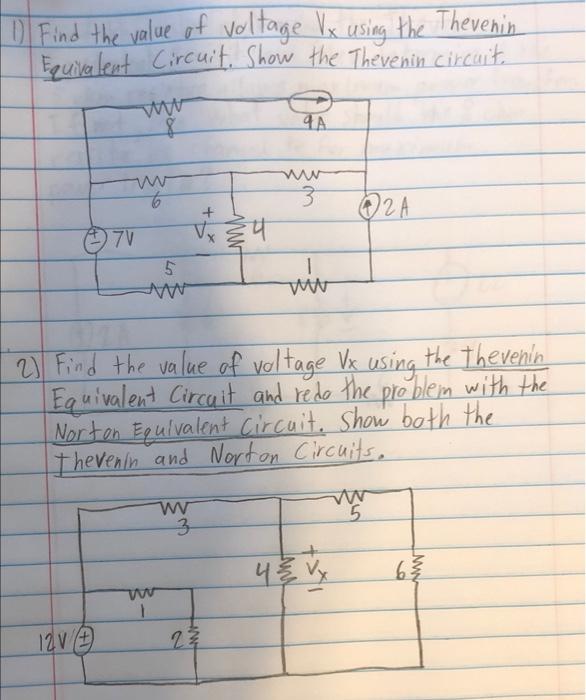 1) Find the value of voltage Vx using the Thevenin
Equivalent Circuit. Show the Thevenin circuit.
8
9A
6
3
2A
7V
+
Vx
-
4
5
1
2) Find the value of voltage Vx using the Thevenin
Equivalent Circuit and redo the problem with the
Norton Equivalent Circuit. Show both the
Thevenin and Norton Circuits.
3
5
4
+
Vx
-
6
1
12V
2